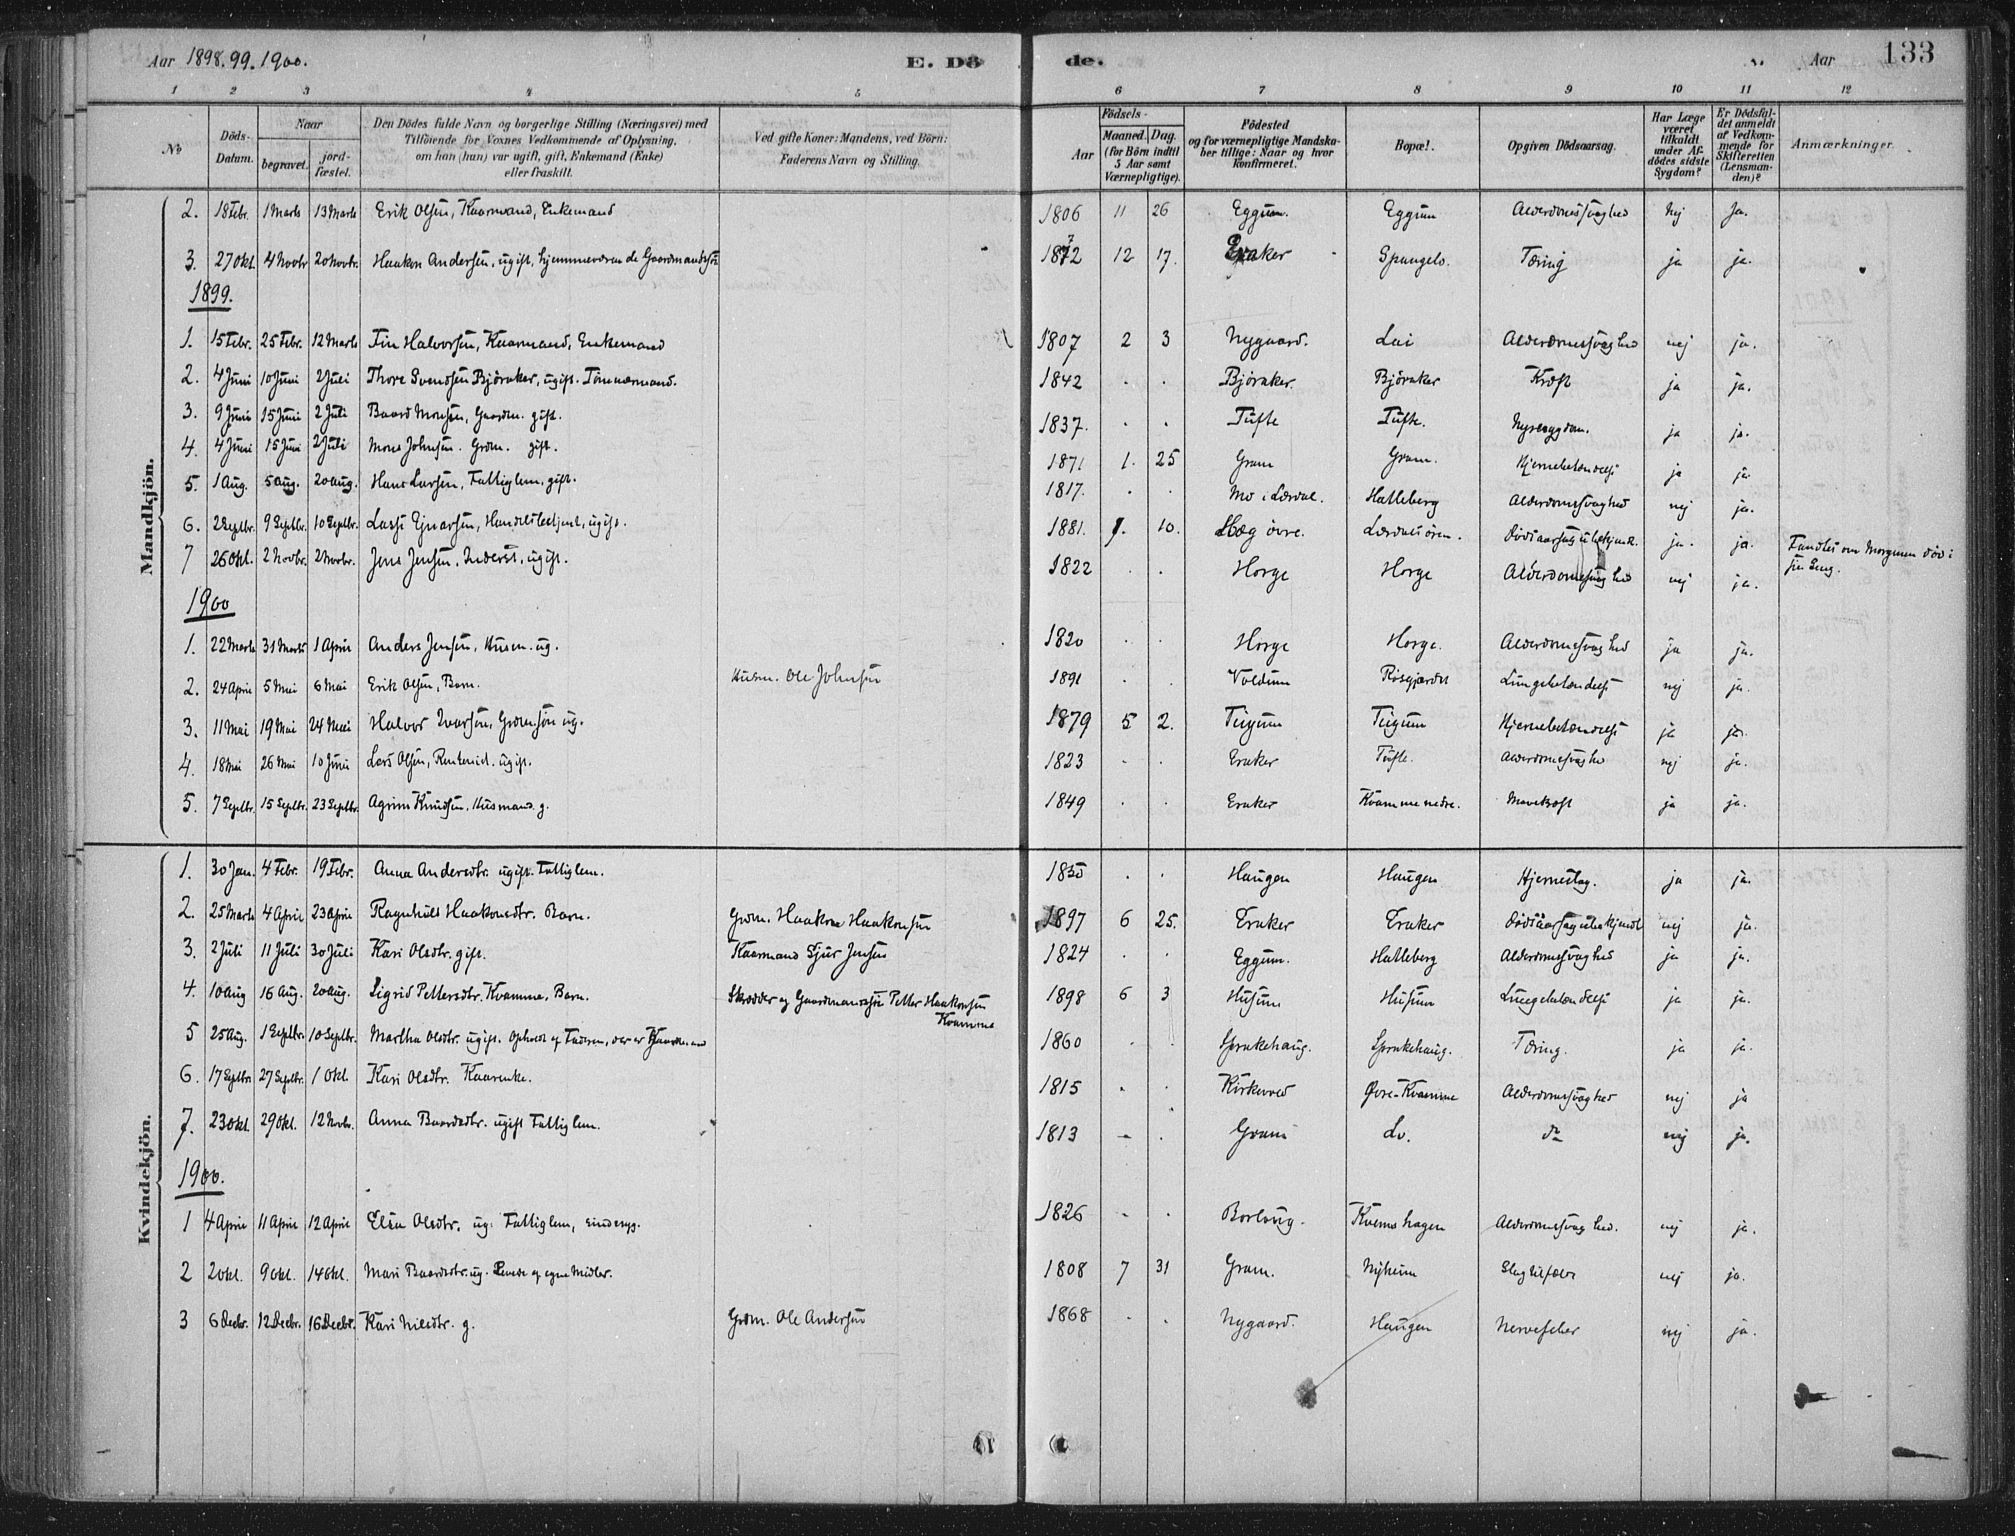 Aar 1898.99.1900. E. Dö de. Aar 133
1 2 3 4 5 6 7 8 9 10 11 12
No Döds-Datum. Naar begravet. jord-fæstet. Den Dödes fulde Navn og borgerlige Stilling (Næringsvei) med Tilföiende for Voxnes Vedkommende af Oplysning, om han (hun) var ugift, gift, Enkemand (Enke) eller fraskilt. Ved gifte Koner: Mandens, ved Börn: Faderens Navn og Stilling. Födsels- Aar Maaned. Dag. (for Börn indtil 5 Aar samt Værnepligtige). Födested og for værnepligtige Mandskaber tillige: Naar og hvor konfirmeret. Bopæl. Opgiven Dödsaarsag. Har Læge været tilkaldt under Afdödes sidste Sygdom? Er Dödsfaldet anmeldt af Vedkommende for Skifteretten (Lensmanden)? Anmærkninger
Mandkjön.
2. 18 Febr. 1 Marts 13 Marts Erik Olsen, Kaarmand, Enkemand 1806 11 26 Eggum. Eggum Alderdomssvaghed Nej Ja.
3. 27 Okt. 4 Novbr 20 Novbr. Haakon Andersen, ugift, hjemmeværende Gaardmandssøn 1872 12 17. Eraker Spangelo. Tæring ja ja.
1899.
1. 15 Febr. 25 Febr. 12 Marts Halvorsen, Kaarmand, Enkemand 1807 2 3 Nygaard. Lai Alderdomssvaghed nej ja.
2. 4 Juni 10 Juni 2 Juli Thore Svendsen Björaker, ugift. Tømmermand. 1842 . . Björaker. Björaker Kræft ja ja.
3. 9 Juni 15 Juni 2 Juli Baard Monsen, Gaardm. gift. 1837. . . Tufte Tufte. Nyresygdom. ja ja.
4. 4 Juni 15 Juni 2 Juli Mons Johnsen. Grdm. gift. 1871 1. 25 Gram Gram. Hjernebetændelse ja ja
5. 1 Aug. 5 Aug. 20 Aug. Hans Larsen, Fattiglem, gift. 1817. . . Mo i Lærdal. Hatleberg Alderdomssvaghed nej ja.
6. 2 Septbr. 9 Septbr. 10 Septbr. Lasse Ejnarsen, Handelsbetjent, ugift. 1881. 10. Hæg övre. Lærdalsören. Dödsaarsag ubekjendt. ja. ja. Fandtes om Morgenen död i sin Seng.
7 26 Okt. 2 Novbr. 2 Novbr. Jens Jensen, Inderst, ugift. 1822 . . Horge Horge Alderdomssvaghed nej ja.
1900
1. 22 Marts 31 Marts 1 April Anders Jensen, Husm. ug. 1820 . . Horge Horge. Alderdomssvaghed ja ja.
2. 24 April 5 Mai 6 Mai Erik Olsen, Barn. Husm. Ole Johnsen 1891 . . Voldum Rösgjærdet Lungebetændelse nej ja.
3. 11 Mai 19 Mai 24 Mai Halvor Ivarsön, Grdm.sön ug. 1879 5 2. Tugum Tugum Hjernebetændelse ja ja.
4. 18 Mai 26 Mai 10 Juni Lars Olsen, Rentenist. ugift. 1823 . . Eraker Tufte. Alderdomssvaghed nej ja.
5. 7 Septbr. 15 Septbr. 23 Septbr. Agrim Knudsen, Husmand. g. 1849 . . Eraker Kvamme nedre. Mavekræft ja ja.
Kvindekjön.
1. 30 Jan. 4 Febr. 19 Febr. Anna Andersdtr. ugift. Fattiglem. 1835 . . Haugen Haugen Hjerneslag. ja ja.
2. 25 Marts 4 April 23 April Ragnhild Haakonsdtr. Barn. Grdm. Haakon Haakonsen 1897 6 25. Eraker Eraker Dödsaarsag ubekjendt nej ja.
3. 2 Juli 11 Juli 30 Juli Kari Olsdtr. gift. Kaarmand Sjur Jensen 1824 . . Eggum. Hatleberg Alderdomssvaghed ja ja.
4. 10 Aug 16 Aug. 20 Aug. Sigrid Pettersdtr. Kvamme, Barn. Skrædder og Gaardmandssön Petter Haakonsen Kvamme 1898 6 3 Husum Husum Lungebetændelse ja ja.
5 25 Aug. 1 Septbr. 10 Septbr. Martha Olsdtr. ugift. Opholdt af Faderen, der er Kaarmand 1860 . . Sprakehaug. Sprakehaug. Tæring. ja ja.
6. 17 Septbr. 27 Septbr. 1 Okt. Kari Olsdtr. Kaarenke. 1815 . . Kirkevold Øvre-Kvamme Alderdomssvaghed nej ja
7. 23 Okt. 29 Okt. 12 Novbr. Anna Baardsdtr. ugift Fattiglem. 1813 - . Gram Lo. do nej ja.
1900.
1 4 April 11 April 12 April Elsa Olsdtr. ug. Fattiglem, sindssyg. 1826 - . Borlaug. Kvemshagen Alderdomssvaghed. nej ja.
2 2 Okt. 9 Okt. 14 Okt. Mari Baardsdtr. ug. Levede af egne Midler. 1808 7 31 Gram. Nyheim Slagtilfælde nej ja.
3 6 Decbr. 12 Decbr. 16 Decbr. Kari Nilsdtr. g. Grdm. Ole Andersen 1868 . . Nygaard. Haugen Nervefeber nej ja.